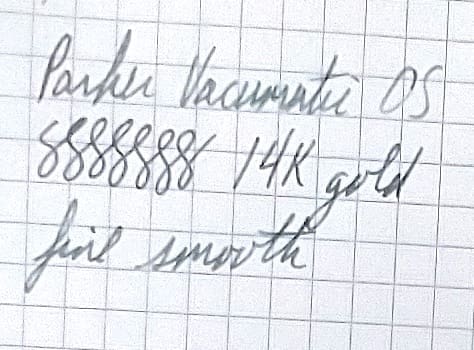 Parker Vacumatic OS
8888888 14K gold
fine smooth